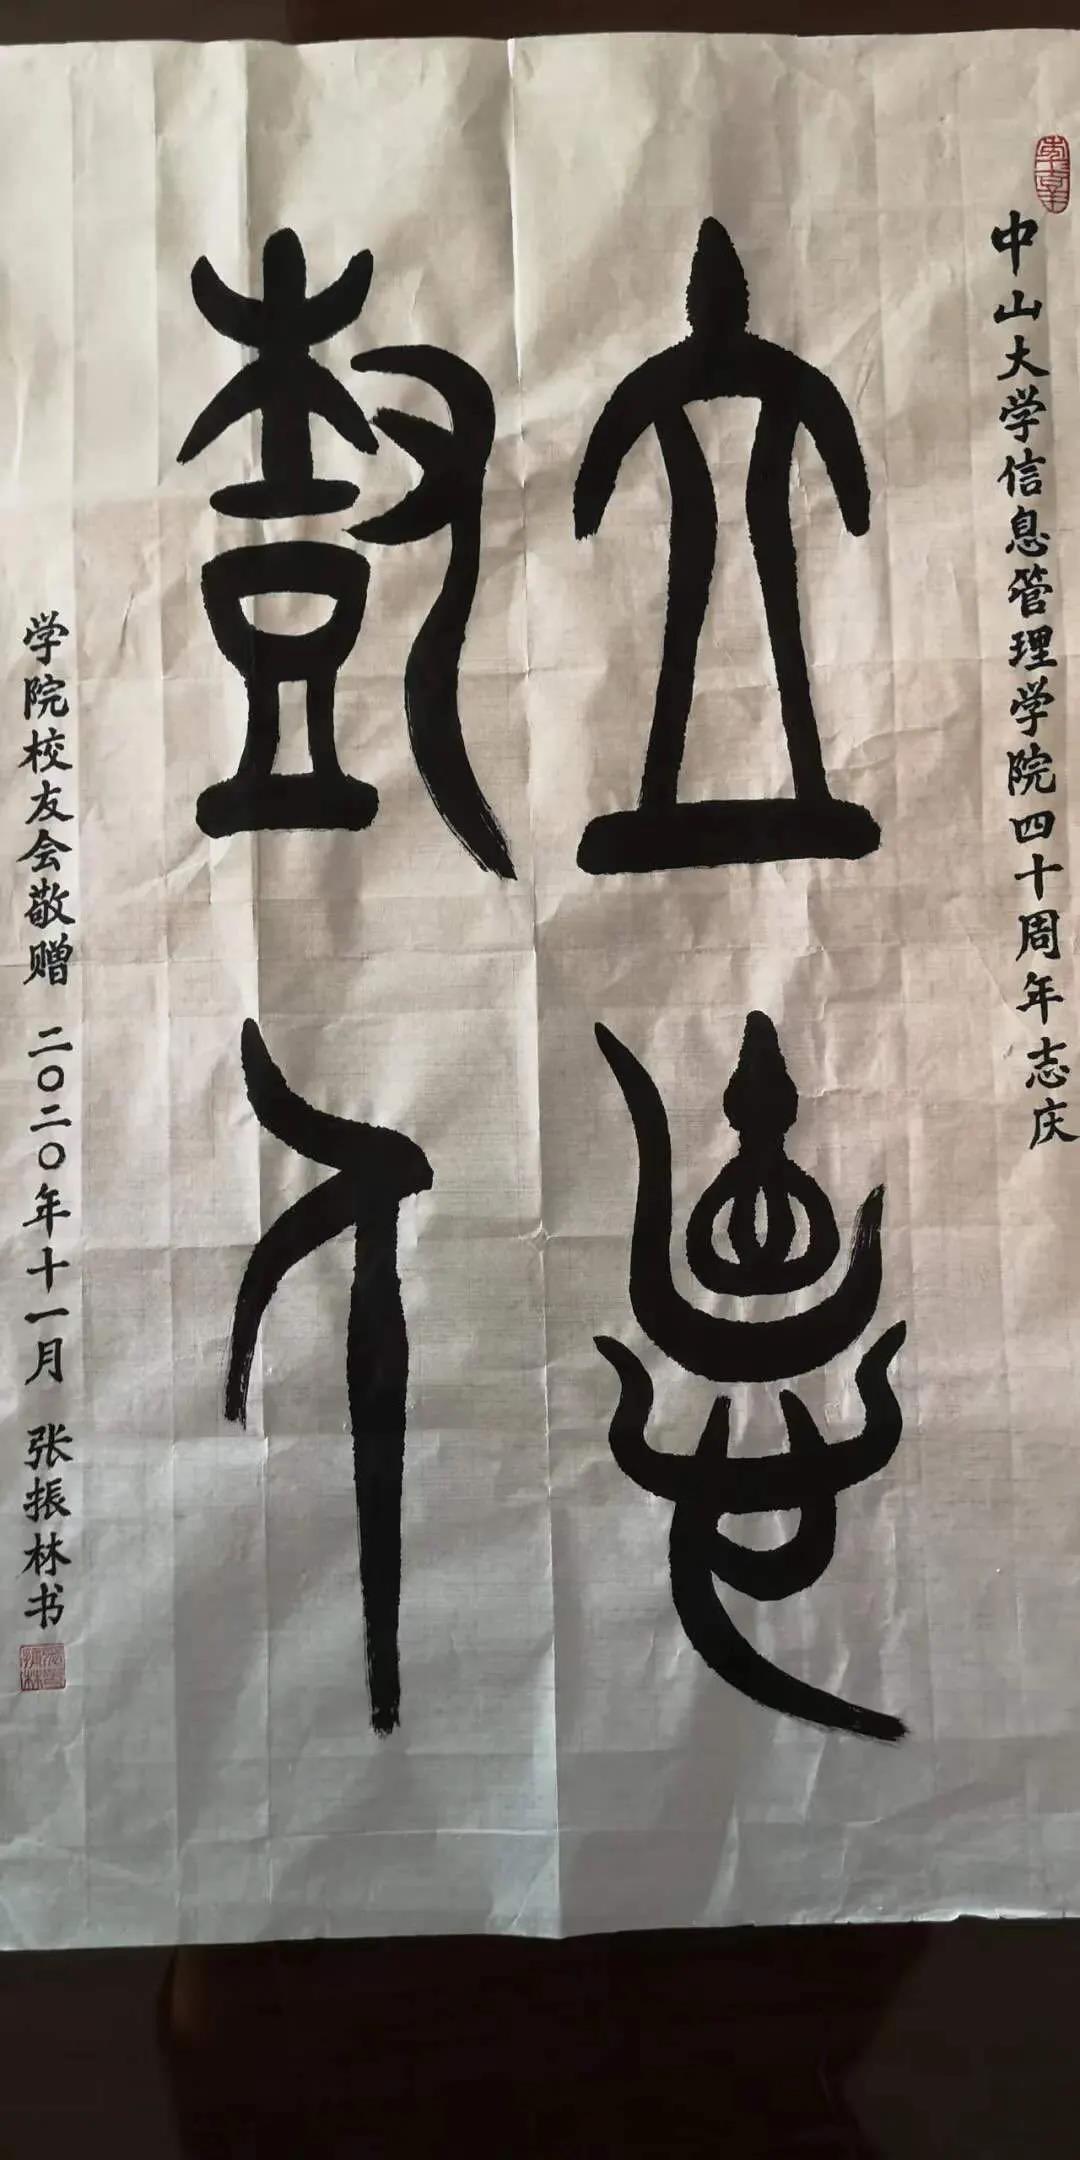 中山大学信息管理学院四十周年志庆
立德
树人
学院校友会敬赠 二〇二〇年十一月 张振林书